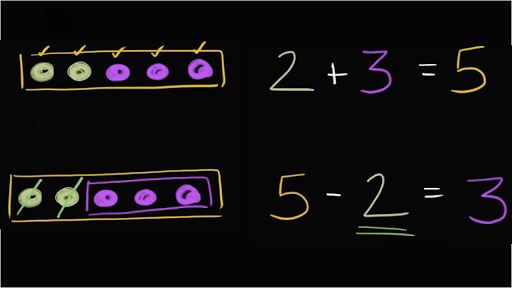 2 + 3 = 5
5 - 2 = 3